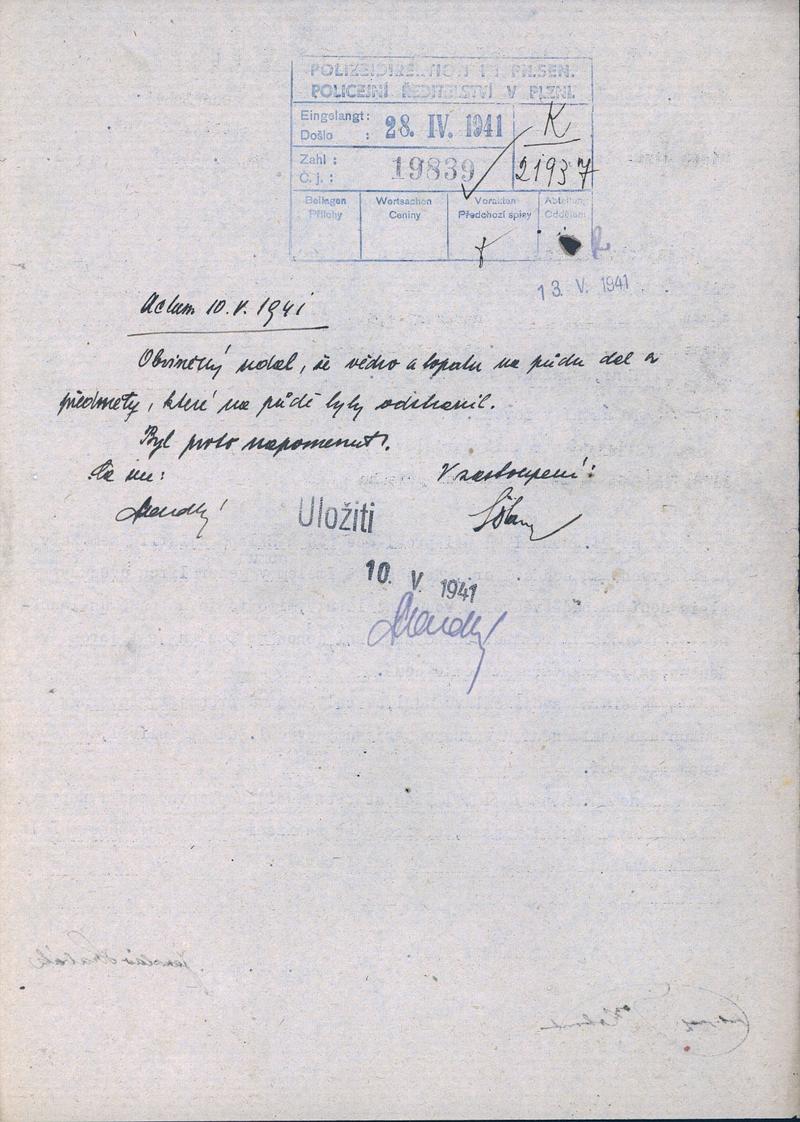 POLIZEIDIREKTION IN PILSEN.
POLICEJNÍ ŘEDITELSTVÍ V PLZNI.
Eingelangt:
Došlo : 28. IV. 1941
K
Zahl :
Č. j. : 19839
21937
Beilagen Wertsachen Vorakten Abteilung
Přílohy Ceniny Předchozí spisy Oddělení
13. V. 1941
Actum 10. V. 1941
Obviněný udal, že vědro a lopatu na půdu dal a
předměty, které na půdě byly odstranil.
Byl proto napomenut.
V zastoupení:
Uložiti
10. V. 1941